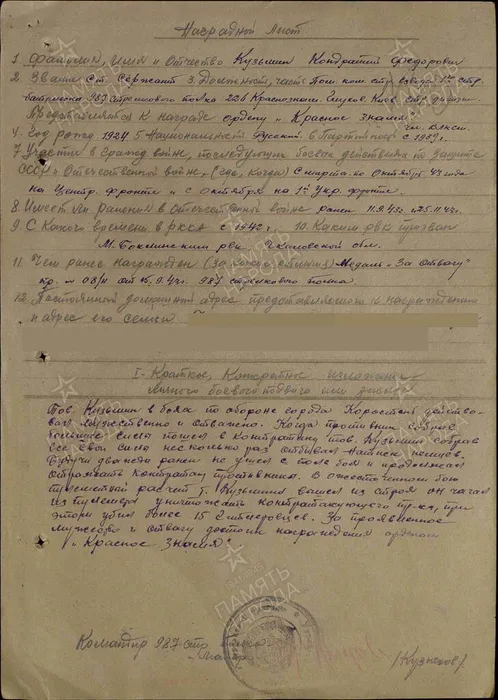 Наградной Лист
1. Фамилия, имя и отчество Кузьмин Кондратий Федорович
2. Звание Ст. Сержант 3. Должность, часть Пом. ком. стр. взвода 1го стр.
батальона 987 стрелкового полка 226 Краснознам. Киев. стр. дивизии.
Представляется к награде ордену "Красное знамя"
4. Год рожд. 1924 5. Национальность Русский. 6. Партийность чл. ВЛКСМ.
7. Участие в гражд. войне, последующих боевых действиях по защите
СССР и Отечественной войне, (где, когда) с марта по Октябрь 43 года
на Центр. фронте и с Октября на 1м Укр. фронте.
8. Имеет ли ранения в отечественной войне ранен 11.9.43г. и 25.11.43г.
9. С какого времени в РККА с 1942г. 10. Каким рвк призван
рвк Чкаловской обл.
11. Чем ранее награжден (за какие отличия) Медаль "За отвагу"
пр. № 08/н от 15.9.43г. 987 стрелкового полка.
12. Постоянный домашний адрес представляемого к награждению
и адрес его семьи
I - Краткое, конкретное изложение
личного боевого подвига или заслуг
Тов. Кузьмин в боях по обороне города Коростень действо-
вал мужественно и отважно. Когда противник собрав
большие силы пошел в контратаку тов. Кузьмин собрав
все свои силы несколько раз отбивал натиск немцев.
Будучи дважды ранен не ушел с поля боя и продолжал
отражать контратаки противника. В ожесточенном бою
пулеметный расчет т. Кузьмина вышел из строя он начал
из пулемета уничтожать контратакующего пр-ка, при
этом убил более 15 гитлеровцев. За проявленное
мужество и отвагу достоин награждения орденом
"Красное знамя"
Командир 987 стр. полка
Майор /Кузнецов/
ПАМЯТЬ НАРОДА